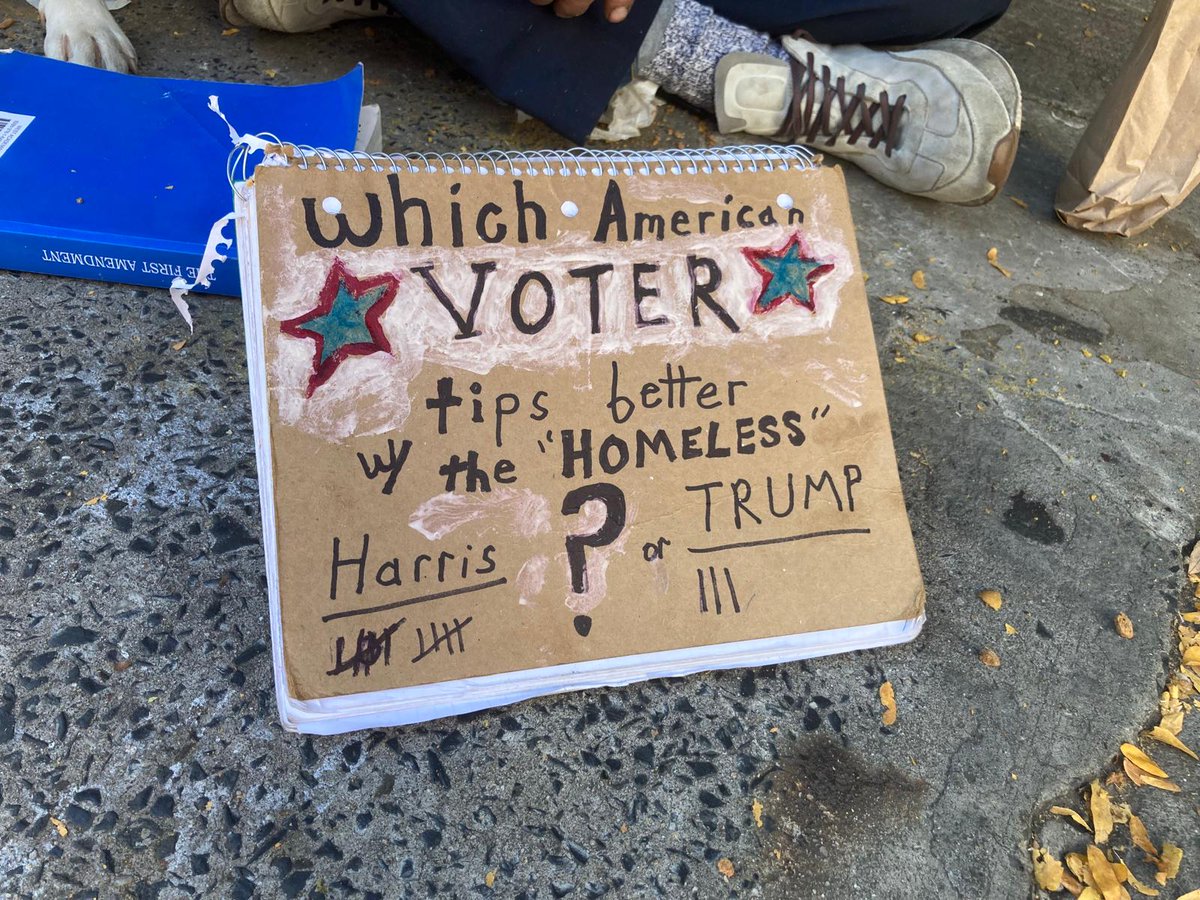 Which American
VOTER
tips better
w/ the "HOMELESS"
?
Harris or TRUMP
THE FIRST AMENDMENT